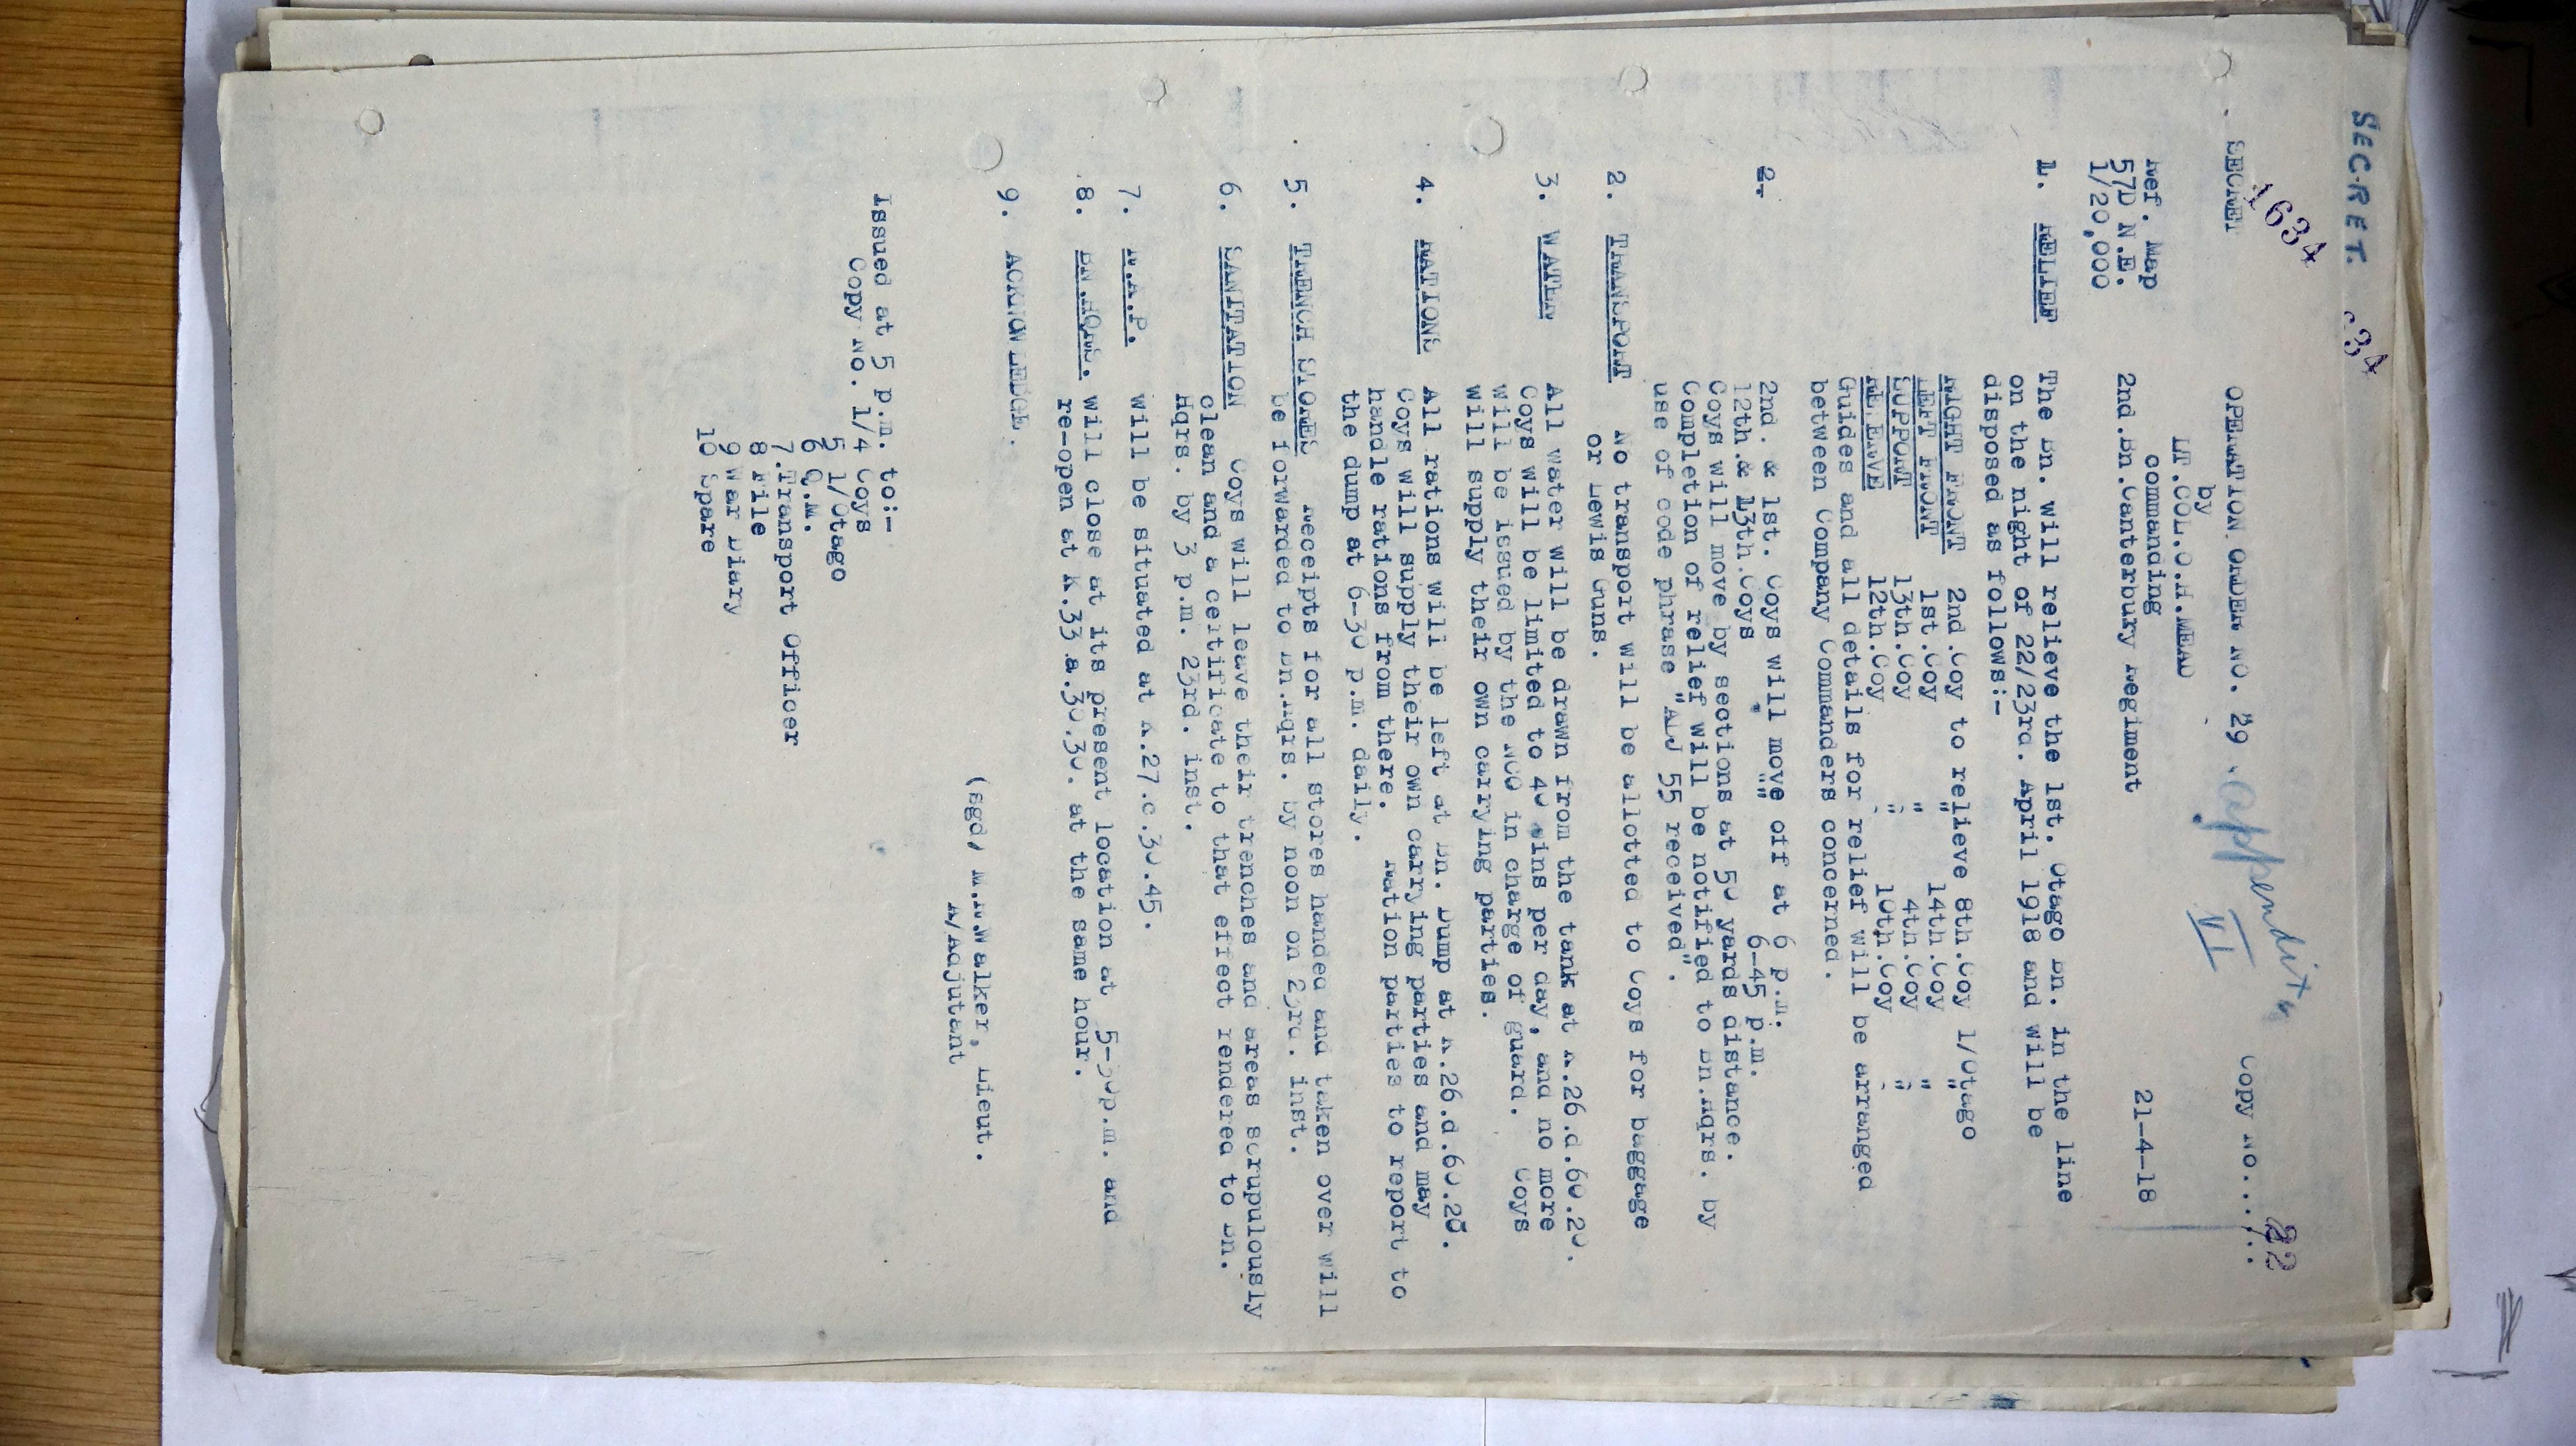 SECRET.
1634
34
SECRET
OPERATION ORDER NO. 29.
Appendix
VI
Copy No.
22
by
LT.COL.O.H.MEAD
commanding
2nd.Bn.Canterbury Regiment
21-4-18
Ref. Map
57D N.E.
1/20,000
1. RELIEF The Bn. will relieve the 1st. Otago Bn. in the line
on the night of 22/23rd. April 1918 and will be
disposed as follows:-
RIGHT FRONT 2nd.Coy to relieve 8th.Coy 1/Otago
LEFT FRONT 1st.Coy " 14th.Coy "
SUPPORT 13th.Coy " 4th.Coy "
RESERVE 12th.Coy " 10th.Coy "
Guides and all details for relief will be arranged
between Company Commanders concerned.
2. 2nd. & 1st. Coys will move off at 6 p.m.
12th.& 13th.Coys " " 6-45 p.m.
Coys will move by sections at 50 yards distance.
Completion of relief will be notified to Bn.Hqrs. by
use of code phrase " 55 received".
2. TRANSPORT No transport will be allotted to Coys for baggage
or Lewis Guns.
3. WATER All water will be drawn from the tank at K.26.d.60.20.
Coys will be limited to 40 tins per day, and no more
will be issued by the NCO in charge of guard. Coys
will supply their own carrying parties.
4. RATIONS All rations will be left at Bn. Dump at K.26.d.60.20.
Coys will supply their own carrying parties and may
handle rations from there. Ration parties to report to
the dump at 6-30 p.m. daily.
5. TRENCH STORES Receipts for all stores handed and taken over will
be forwarded to Bn.Hqrs. by noon on 23rd. inst.
6. SANITATION Coys will leave their trenches and areas scrupulously
clean and a certificate to that effect rendered to Bn.
Hqrs. by 3 p.m. 23rd. inst.
7. R.A.P. will be situated at K.27.c.30.45.
8. BN.HQRS. will close at its present location at 5-30p.m. and
re-open at K.33.a.30.30. at the same hour.
9. ACKNOWLEDGE.
(sgd, M.N.Walker, Lieut.
A/Adjutant
Issued at 5 p.m. to:-
Copy No. 1/4 Coys
5 1/Otago
6 Q.M.
7.Transport Officer
8 File
9 War Diary
10 Spare